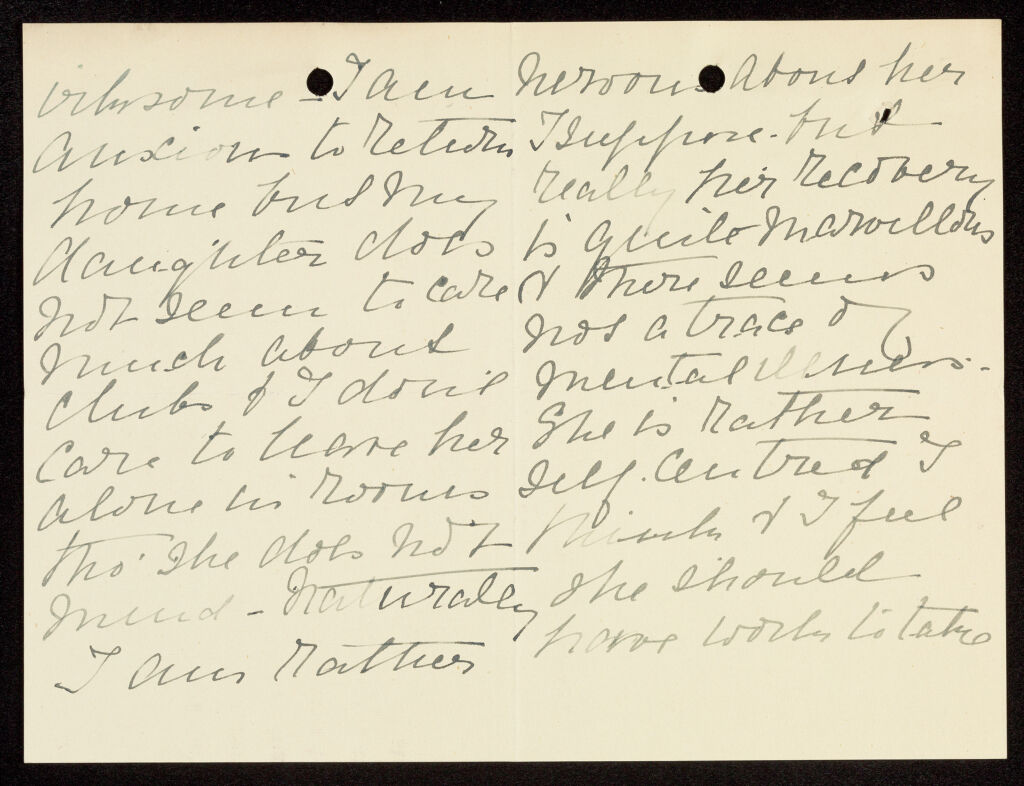 irksome - I am
anxious to return
home but my
daughter does
not seem to care
much about
clubs & I don't
care to leave her
alone in rooms
tho' she does not
mind - Naturally
I am rather
nervous about her
I suppose - but
really her recovery
is quite marvellous
& there seems
not a trace of
mental illness -
She is rather
self. centred I
think & I feel
she should
have work to take